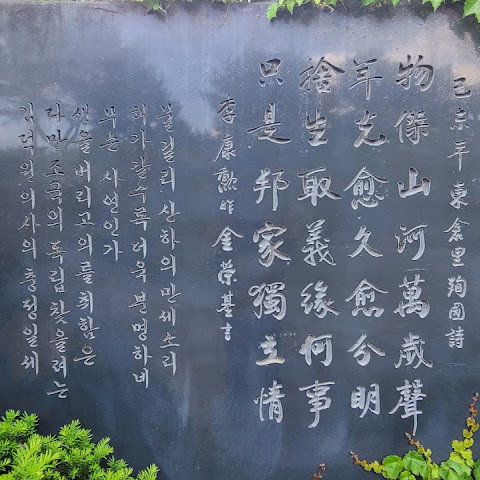 己未年東倉里殉國詩
物傑山河萬歲聲
年光愈久愈分明
捨生取義緣何事
只是邦家獨立情
李康勳作 金榮基書
물걸리 산하의 만세소리
해가 갈수록 더욱 분명하네
무슨 사연인가
생을 버리고 의를 취함은
다만 조국의 독립 찾을려는
의사의 충정일세